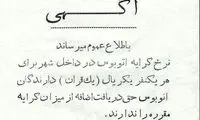 آگهی
باطلاع عموم میرساند
نرخ کرایه اتوبوس در داخل شهر برای
هر یکنفر یکریال (یك قران) دارندگان
اتوبوس حق دریافت اضافه از میزان کرایه
مقرره را ندارند.